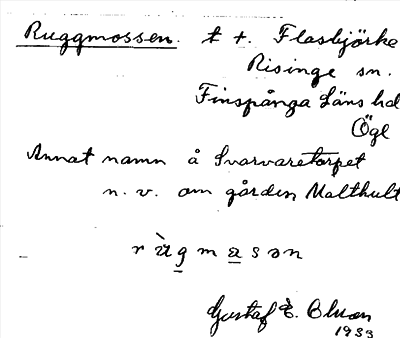 Ruggmossen. t +. Flasbjörke
Risinge sn.
Finspånga Läns hd
Ögl
Annat namn å Svarvaretorpet
n. v. om gården Malthult
r ù g m a s ə n
Gustaf E.
1933